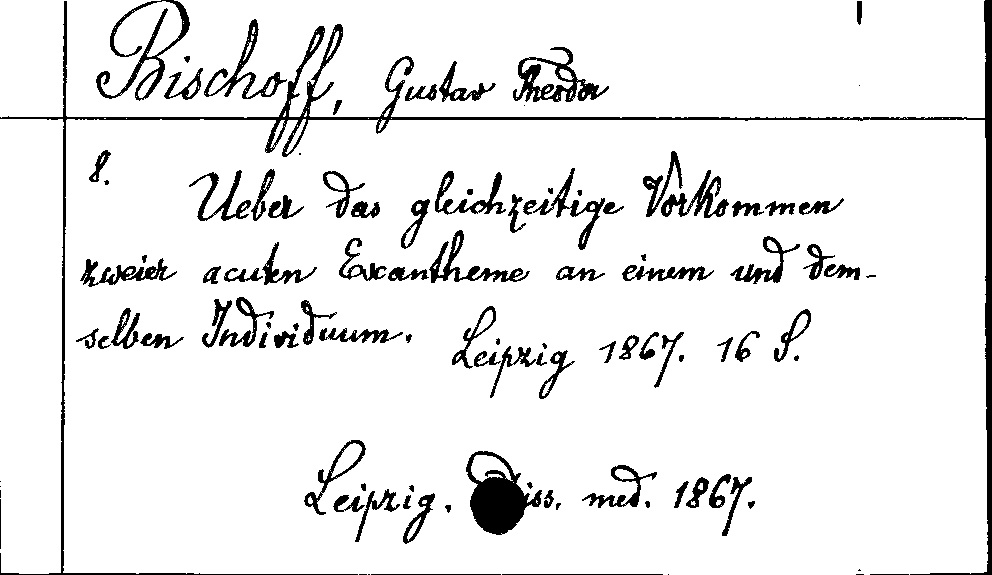 Bischoff, Gustav Theodor
8.
Ueber das gleichzeitige Vorkommen
zweier acuten Exantheme an einem und dem-
selben Individuum.
Leipzig 1867. 16 S.
Leipzig. Diss. med. 1867.